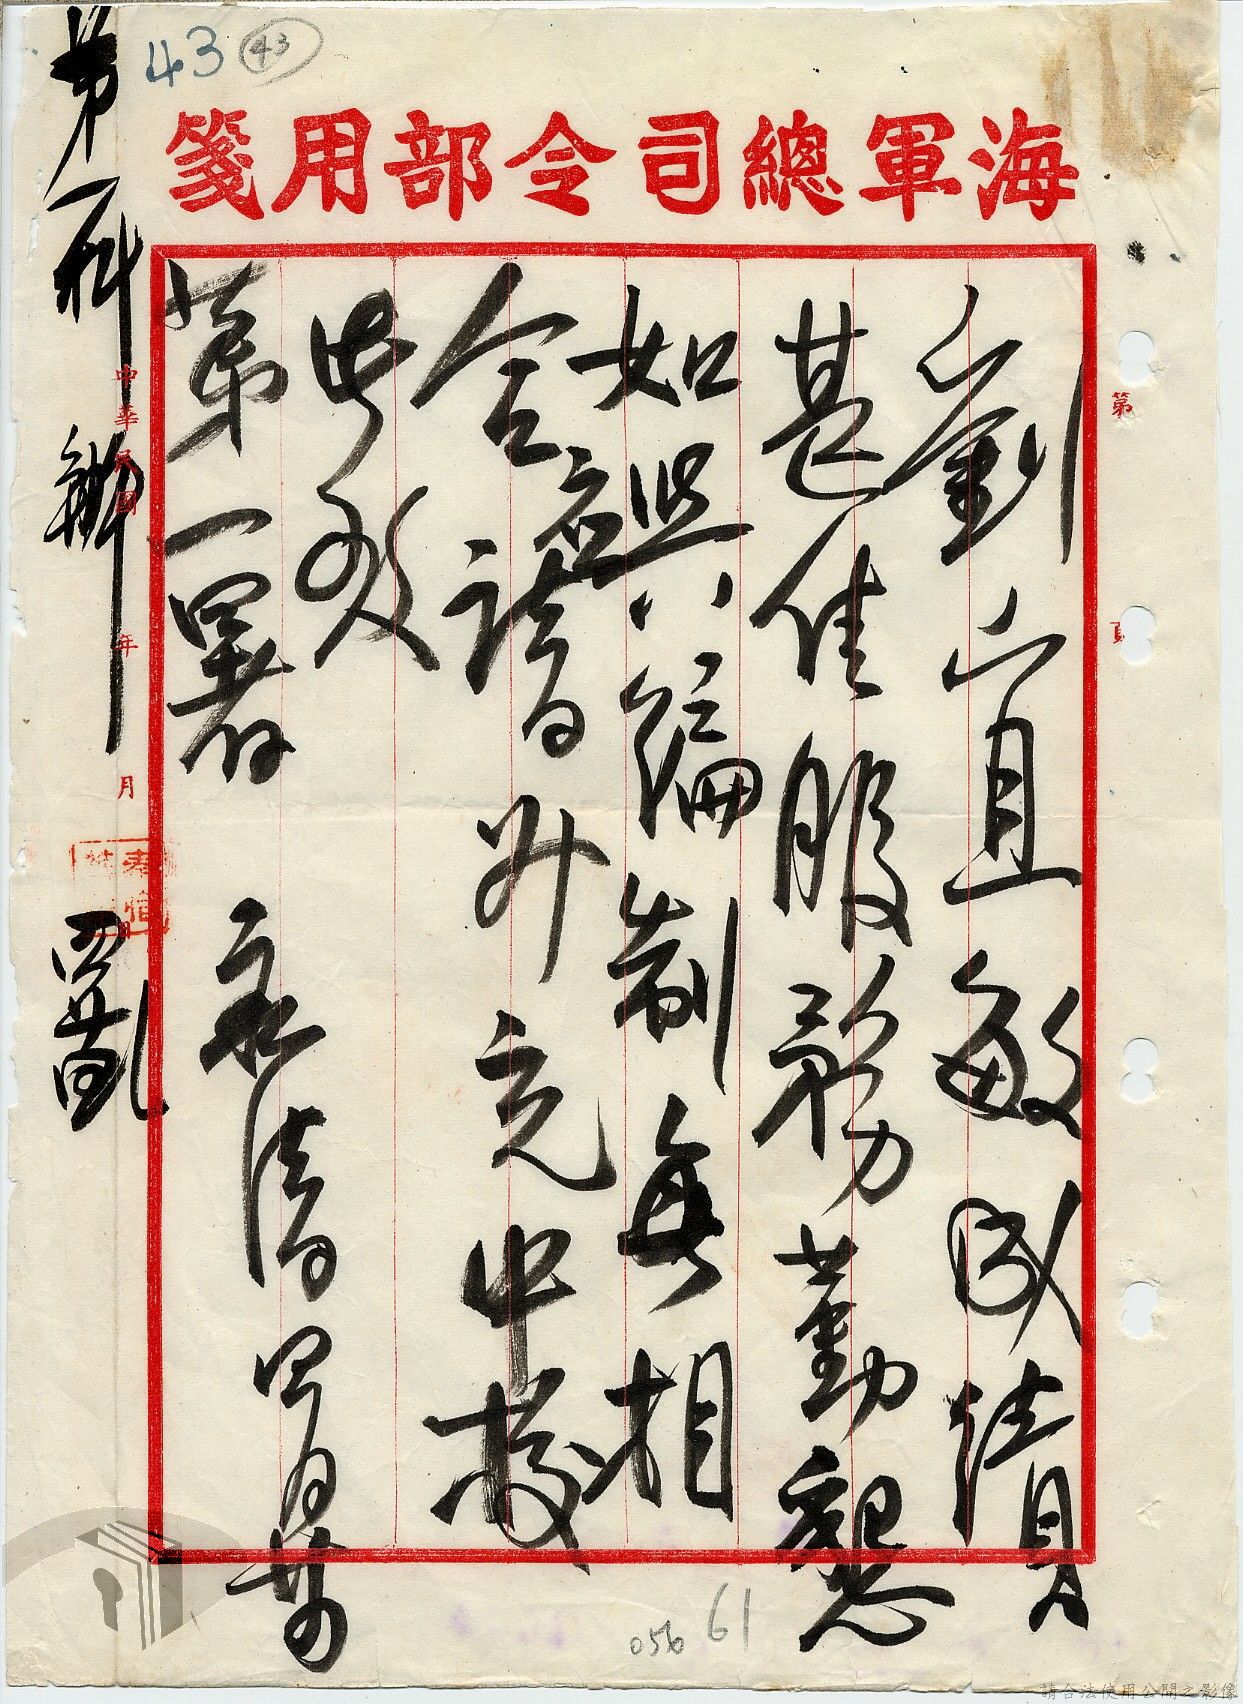 43
43
海軍總司令部用箋
第 頁
劉宜敏成績
甚佳服務勤懇
如與編制無相
合應請升充中校
此致
第一署
永清 四月廿
中華民國 年 月
第一科辦
056
61
請合法使用公開之影像